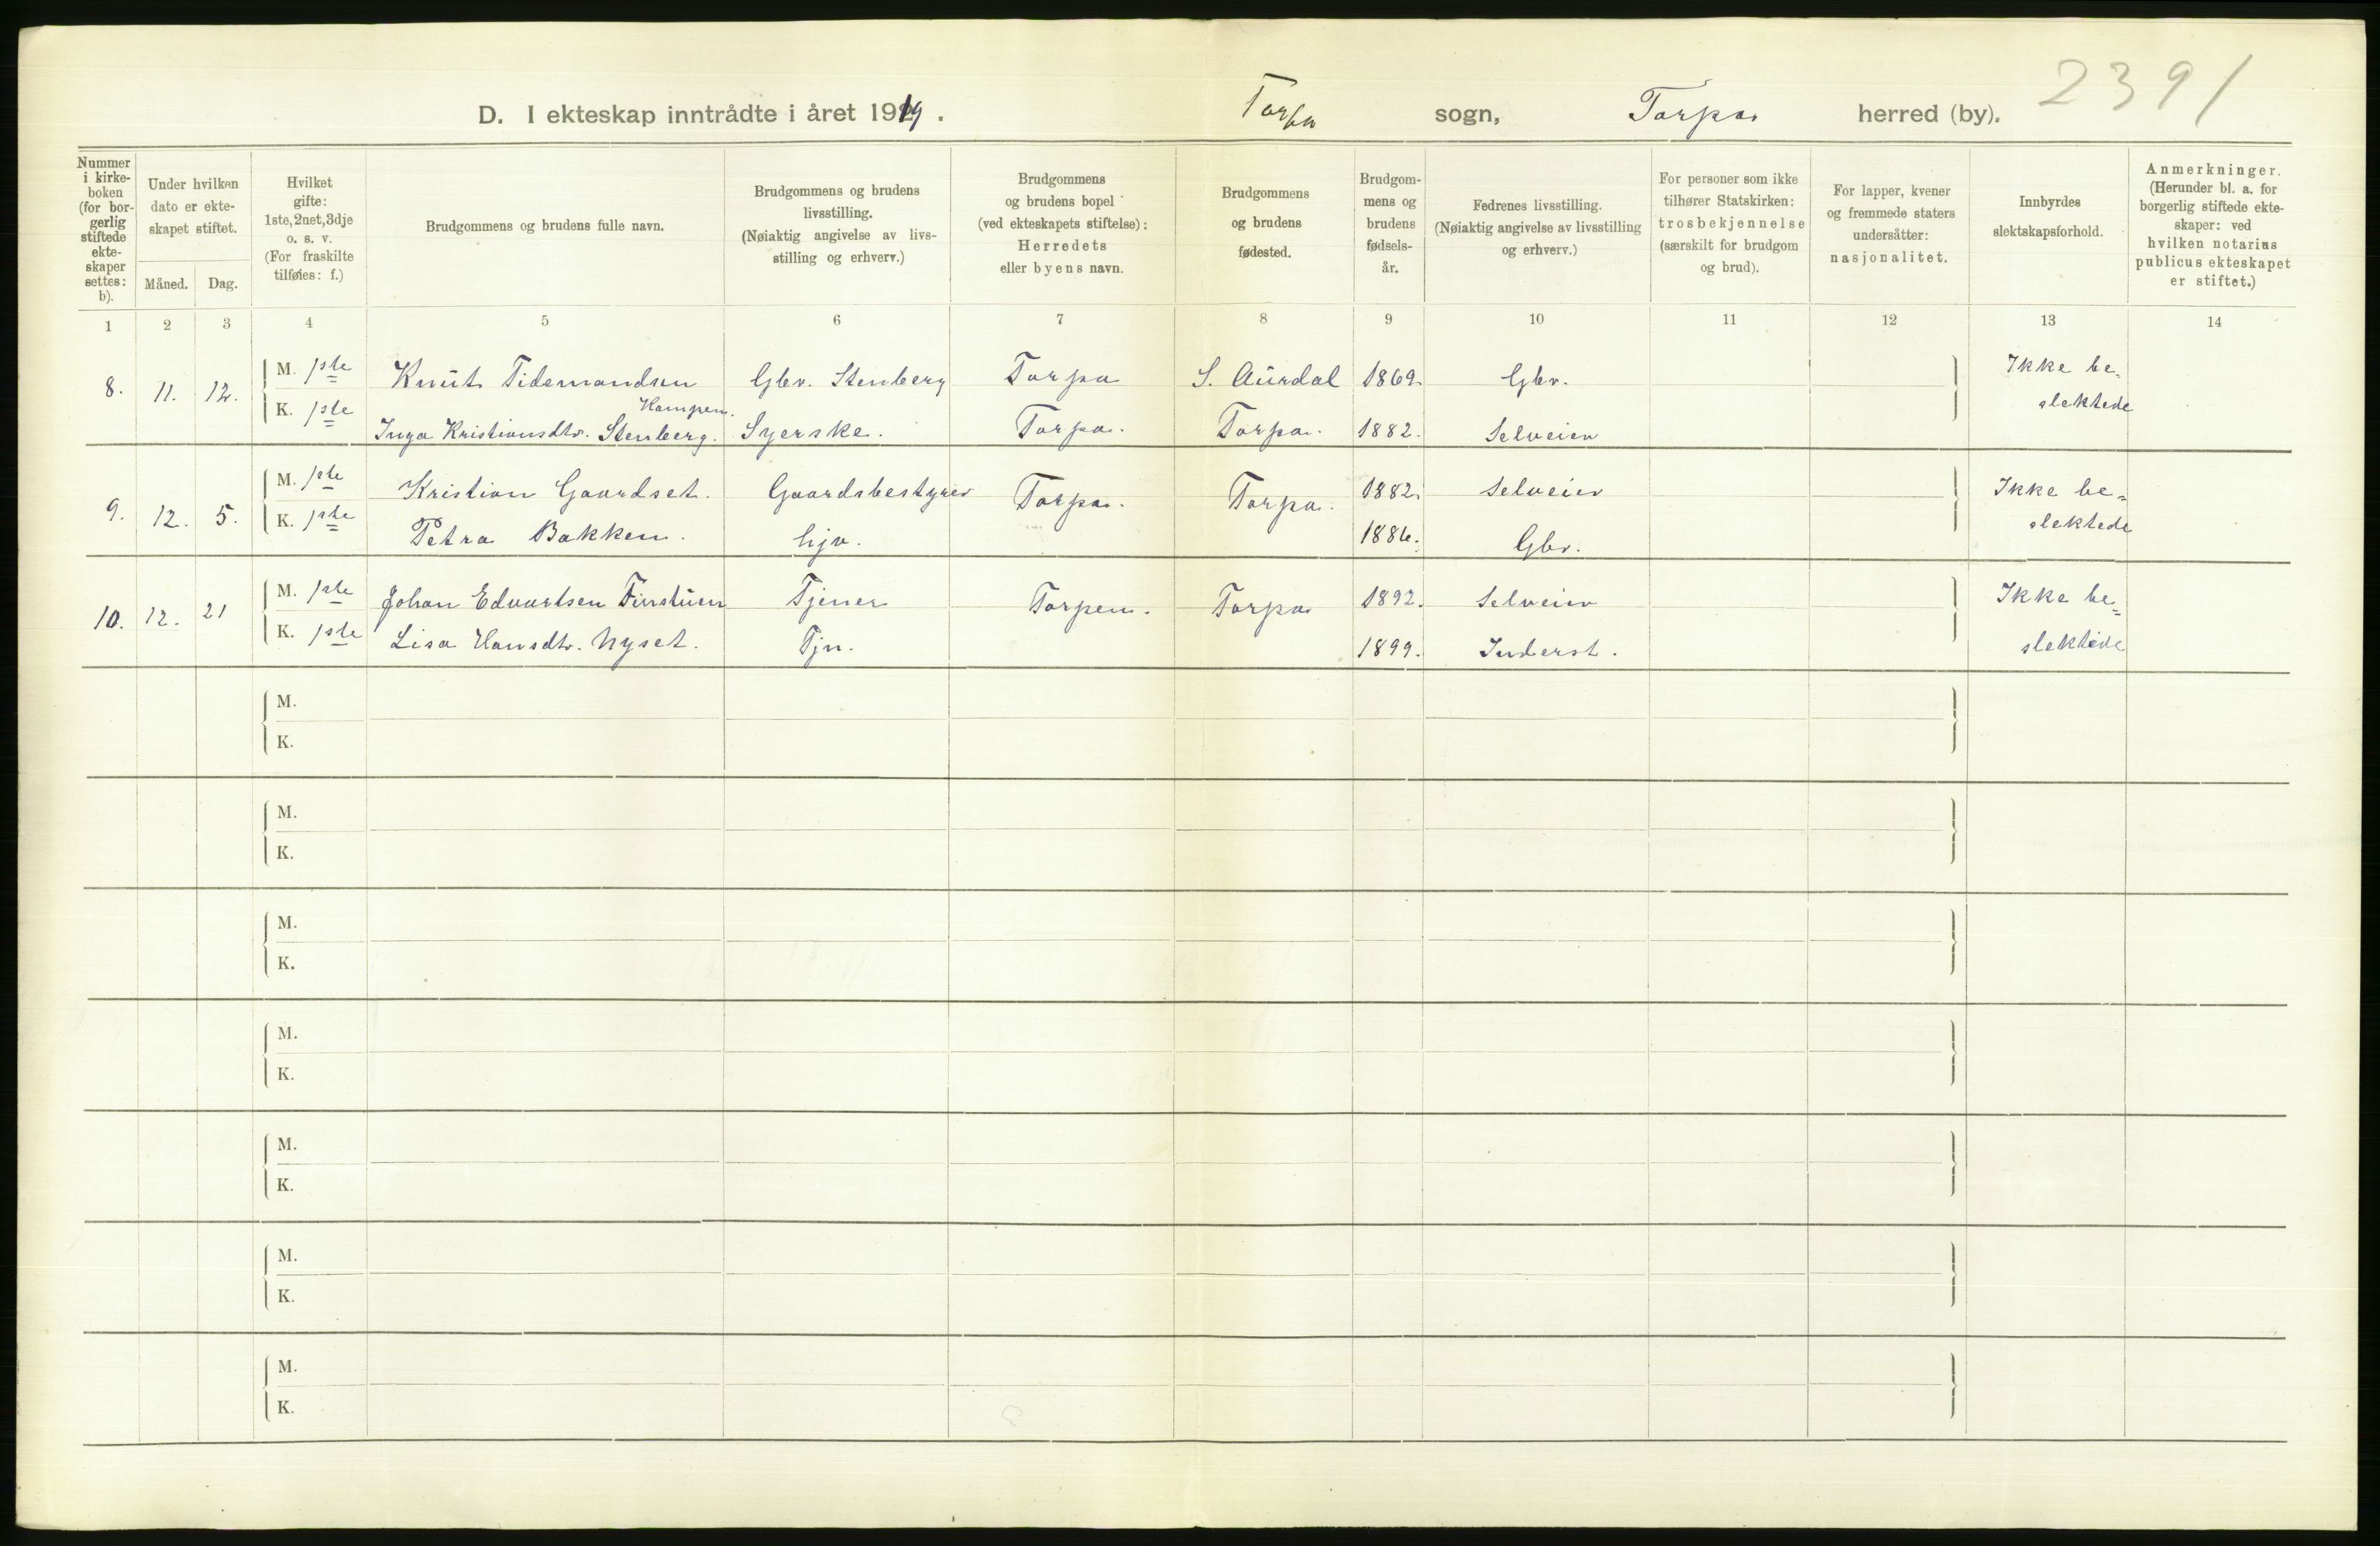 2391
D. I ekteskap inntrådte i året 1919. Torpa sogn, Torpa herred (by).
Nummer i kirke-boken (for bor-gerlig stiftede ekte-skaper settes: b).
Under hvilken dato er ekte-skapet stiftet.
Måned. Dag.
Hvilket gifte: 1ste, 2net, 3dje o. s. v. (For fraskilte tilføies: f.)
Brudgommens og brudens fulle navn.
Brudgommens og brudens livsstilling. (Nøiaktig angivelse av livs-stilling og erhverv.)
Brudgommens og brudens bopel (ved ekteskapets stiftelse): Herredets eller byens navn.
Brudgommens og brudens fødested.
Brudgom-mens og brudens fødsels-år.
Fedrenes livsstilling. (Nøiaktig angivelse av livsstilling og erhverv.)
For personer som ikke tilhører Statskirken: trosbekjennelse (særskilt for brudgom og brud).
For lapper, kvener og fremmede staters undersåtter: nasjonalitet.
Innbyrdes slektskapsforhold.
Anmerkninger. (Herunder bl. a. for borgerlig stiftede ekte-skaper: ved hvilken notarius publicus ekteskapet er stiftet.)
1 2 3 4 5 6 7 8 9 10 11 12 13 14
8. 11. 12. M. 1ste Knut Tidemandsen Gbr. Stenberg Torpa S. Aurdal 1869. Gbr. Ikke be-
Kampen.
K. 1ste Inga Kristiansdtr. Stenberg. Syerske. Torpa. Torpa. 1882. Selveier slektede
9. 12. 5. M. 1ste Kristian Gaardset. Gaardsbestyrer Torpa. Torpa. 1882. Selveier Ikke be-
K. 1ste Petra Bakken. hjv. 1886. Gbr. slektede
10. 12. 21 M. 1ste Johan Edvartsen Finstuen Tjener Torpen. Torpa 1892. Selveier Ikke be-
K. 1ste Lisa Hansdtr. Nyset. Tjn. 1899. Inderst. slektede
M.
K.
M.
K.
M.
K.
M.
K.
M.
K.
M.
K.
M.
K.